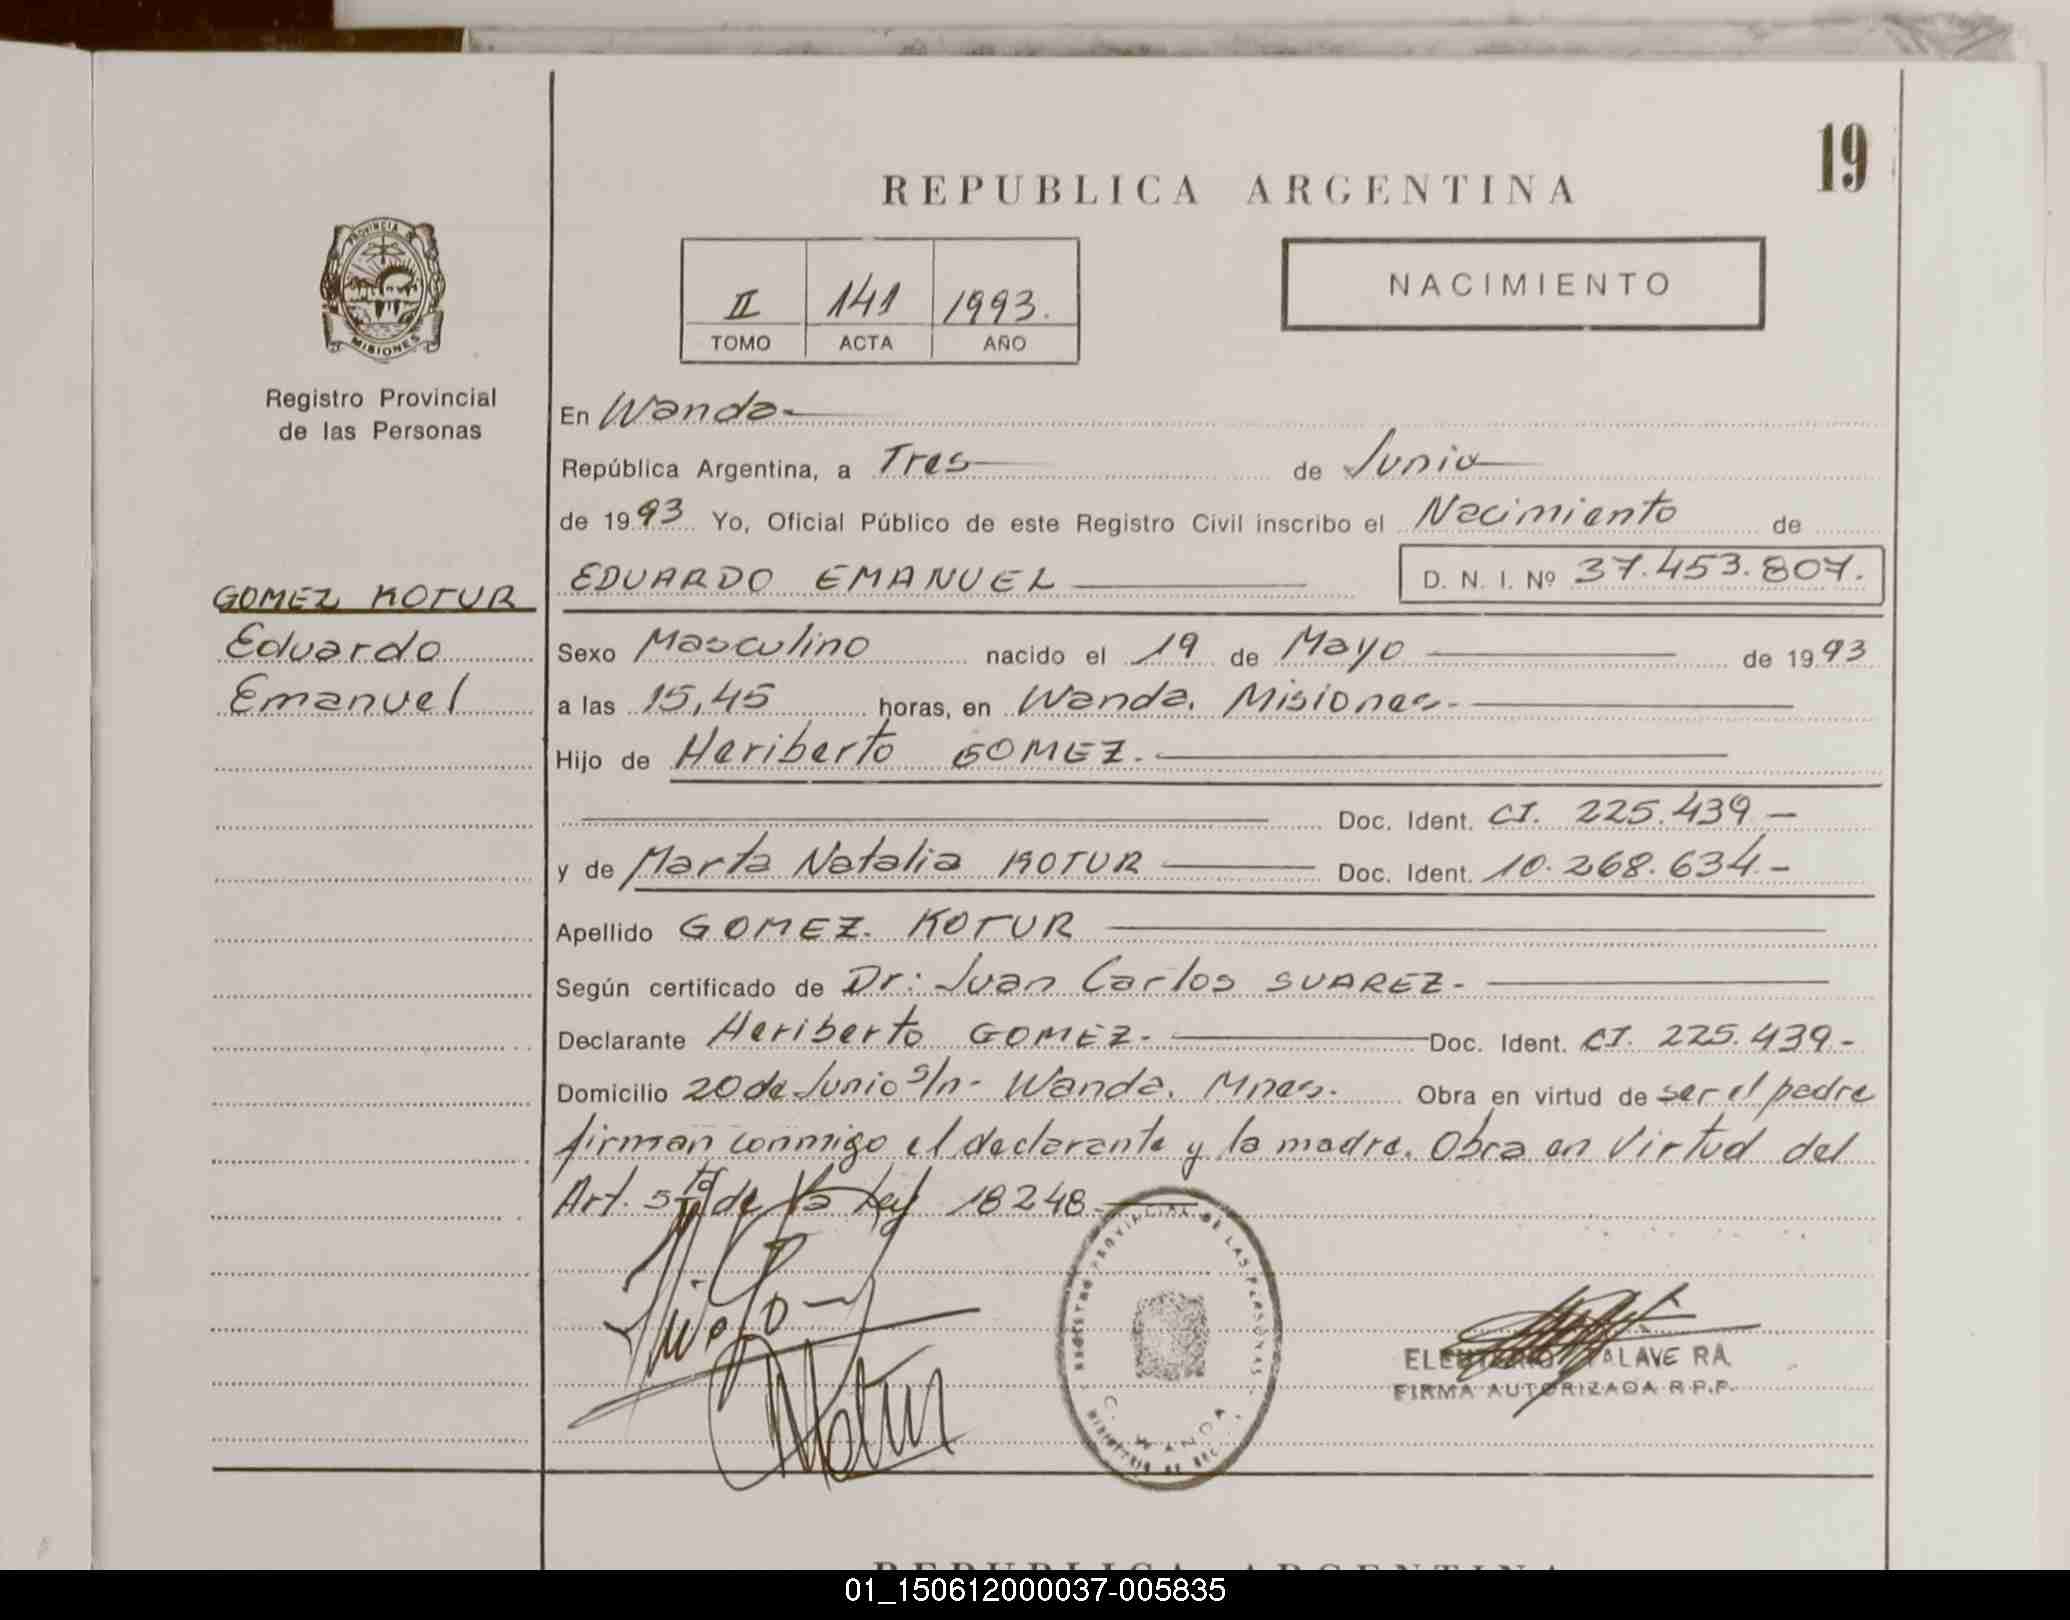 19
REPUBLICA ARGENTINA
PROVINCIA DE
MISIONES
Registro Provincial
de las Personas
II 141 1993.
TOMO ACTA AÑO
NACIMIENTO
En Wanda
República Argentina, a Tres de Junio
de 1993 Yo, Oficial Público de este Registro Civil inscribo el Nacimiento de
EDUARDO EMANUEL D. N. I. Nº 37.453.807.
GOMEZ KOTUR
Eduardo
Emanuel
Sexo Masculino nacido el 19 de Mayo de 1993
a las 15,45 horas, en Wanda. Misiones.
Hijo de Heriberto GOMEZ.
Doc. Ident. CI. 225.439 -
y de Marta Natalia KOTUR Doc. Ident. 10.268.634 -
Apellido GOMEZ. KOTUR
Según certificado de Dr: Juan Carlos SUAREZ.
Declarante Heriberto GOMEZ. Doc. Ident. CI. 225.439 -
Domicilio 20 de Junio s/n- Wanda. Mnes. Obra en virtud de ser el padre
firman conmigo el declarante y la madre. Obra en Virtud del
Art. 5to de la Ley 18248
REGISTRO PROVINCIAL DE LAS PERSONAS
WANDA
FIRMA AUTORIZADA R.P.P.
REPUBLICA ARGENTINA
01_150612000037-005835